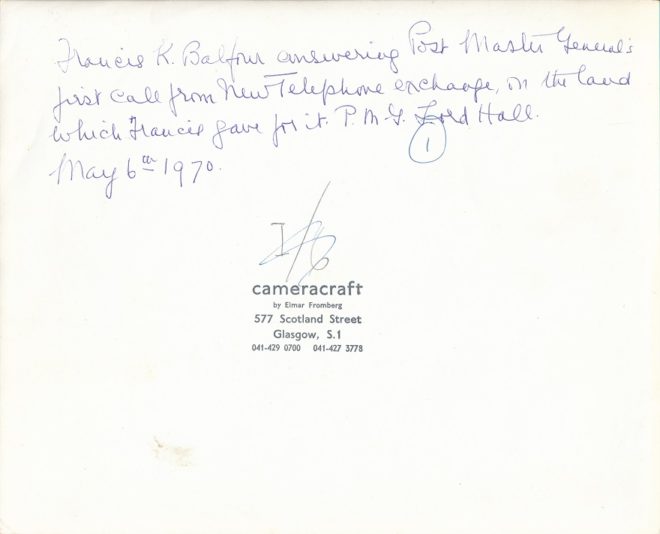 Francis K. Balfour answering Post Master General's
first call from New Telephone exchange, on the land
which Francis gave for it. P.M.G. Lord Hall.
1
May 6th 1970.
I/6
cameracraft
by Elmar Fromberg
577 Scotland Street
Glasgow, S.1
041-429 0700 041-427 3778